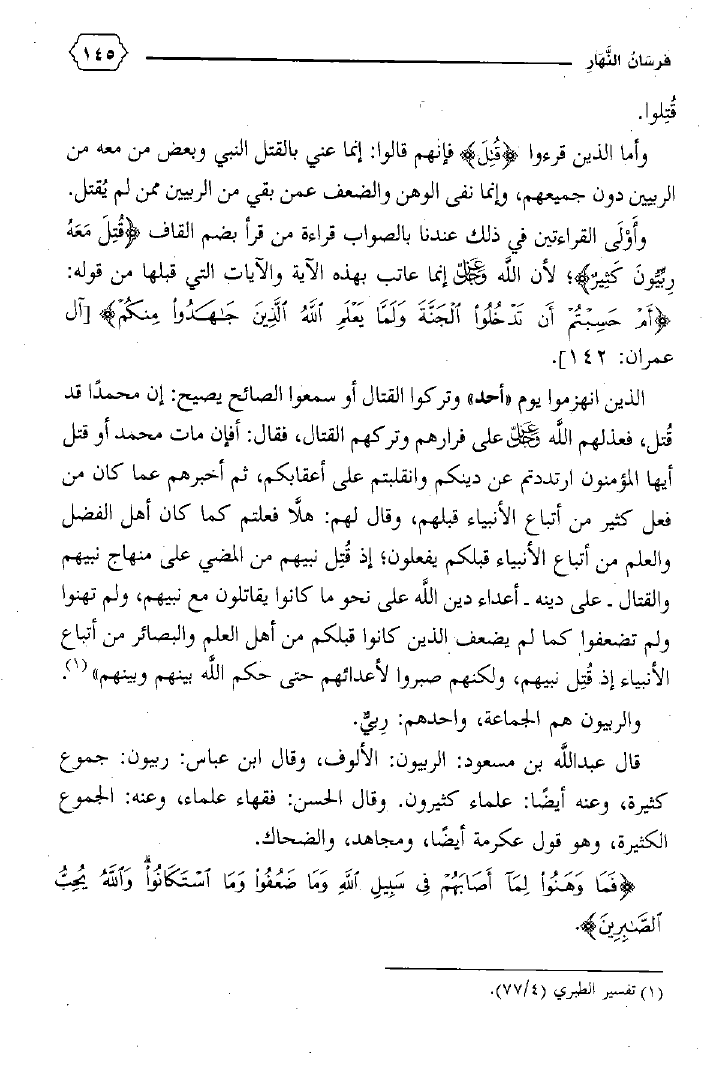 فرسَانُ النَّهَارِ
١٤٥
قُتِلوا.
وأما الذين قرءوا ﴿قُتِلَ﴾ فإنهم قالوا: إنما عني بالقتل النبي وبعض من معه من
الربيين دون جميعهم، وإنما نفى الوهن والضعف عمن بقي من الربيين ممن لم يُقتل.
وأَوْلَى القراءتين في ذلك عندنا بالصواب قراءة من قرأ بضم القاف ﴿قُتِلَ مَعَهُ
رِبِّيُّونَ كَثِيرٌ﴾؛ لأن اللَّه عَزَّ وَجَلَّ إنما عاتب بهذه الآية والآيات التي قبلها من قوله:
﴿أَمْ حَسِبْتُمْ أَن تَدْخُلُواْ الْجَنَّةَ وَلَمَّا يَعْلَمِ اللَّهُ الَّذِينَ جَـٰهَدُواْ مِنكُمْ﴾ [آل
عمران: ١٤٢].
الذين انهزموا يوم «أحد» وتركوا القتال أو سمعوا الصائح يصيح: إن محمدًا قد
قُتل، فعذلهم اللَّه عَزَّ وَجَلَّ على فرارهم وتركهم القتال، فقال: أفإن مات محمد أو قتل
أيها المؤمنون ارتددتم عن دينكم وانقلبتم على أعقابكم، ثم أخبرهم عما كان من
فعل كثير من أتباع الأنبياء قبلهم، وقال لهم: هلَّا فعلتم كما كان أهل الفضل
والعلم من أتباع الأنبياء قبلكم يفعلون؛ إذ قُتِل نبيهم من المضي على منهاج نبيهم
والقتال ـ على دينه ـ أعداء دين اللَّه على نحو ما كانوا يقاتلون مع نبيهم، ولم تهنوا
ولم تضعفوا كما لم يضعف الذين كانوا قبلكم من أهل العلم والبصائر من أتباع
الأنبياء إذ قُتِل نبيهم، ولكنهم صبروا لأعدائهم حتى حكم اللَّه بينهم وبينهم»(١).
والربيون هم الجماعة، واحدهم: رِبيٌّ.
قال عبداللَّه بن مسعود: الربيون: الألوف، وقال ابن عباس: ربيون: جموع
كثيرة، وعنه أيضًا: علماء كثيرون. وقال الحسن: فقهاء علماء، وعنه: الجموع
الكثيرة، وهو قول عكرمة أيضًا، ومجاهد، والضحاك.
﴿فَمَا وَهَنُواْ لِمَآ أَصَابَهُمْ فِى سَبِيلِ اللَّهِ وَمَا ضَعُفُواْ وَمَا اسْتَكَانُواْۗ وَاللَّهُ يُحِبُّ
الصَّـٰبِرِينَ﴾.
(١) تفسير الطبري (٧٧/٤).